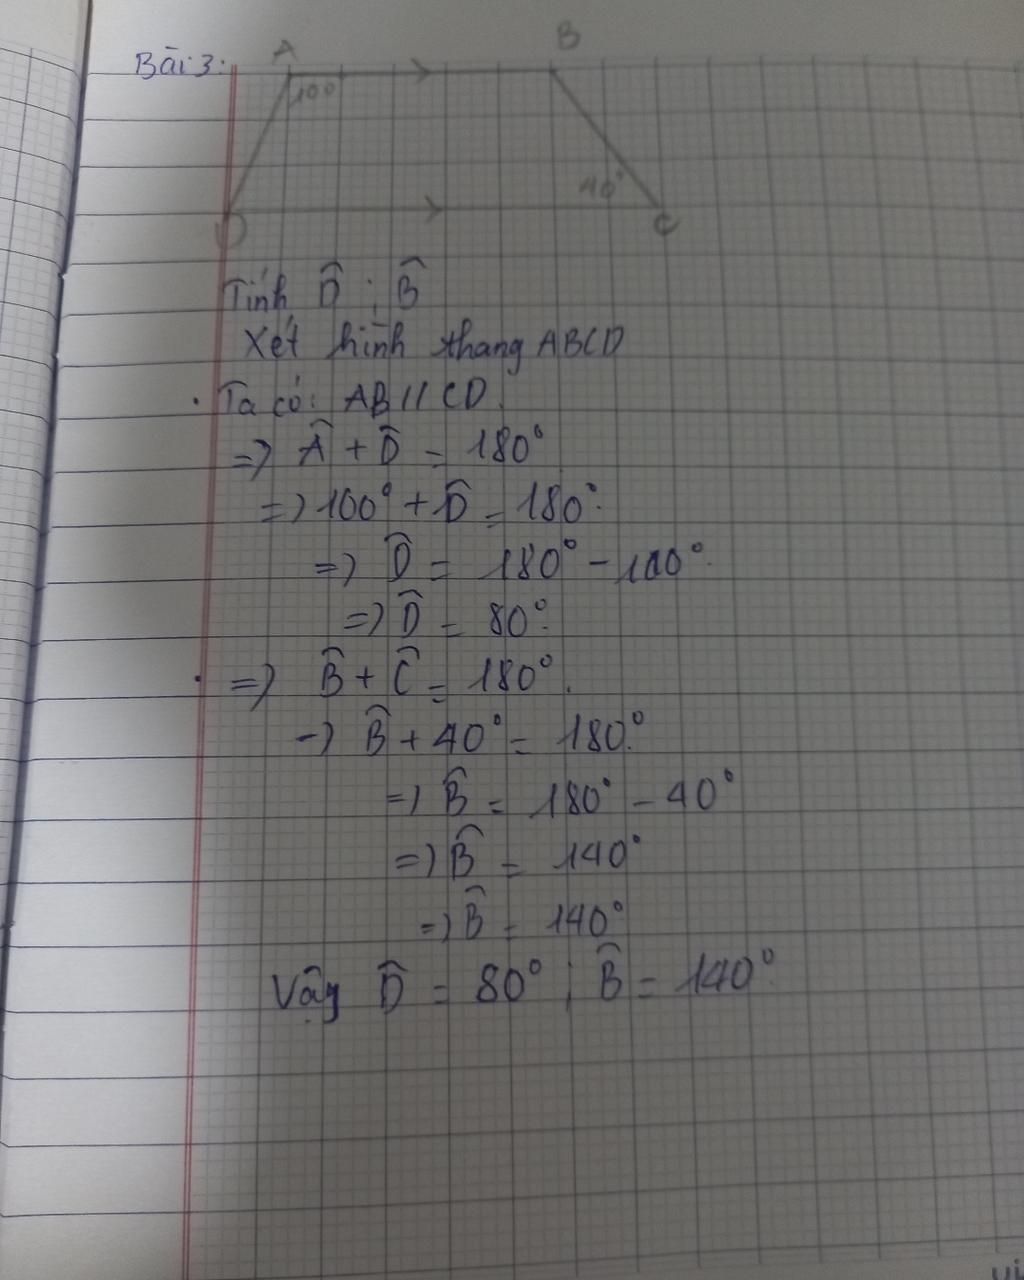 Bài 3:
A
B
100
40°
D
C
Tính D̂ ; B̂
Xét hình thang ABCD
. Ta có: AB // CD.
=> Â + D̂ = 180°
=> 100° + D̂ = 180°.
=> D̂ = 180° - 100°.
=> D̂ = 80°.
. => B̂ + Ĉ = 180°.
-> B̂ + 40° = 180°.
=> B̂ = 180° - 40°
=> B̂ = 140°
=> B̂ = 140°
Vậy D̂ = 80° ; B̂ = 140°.